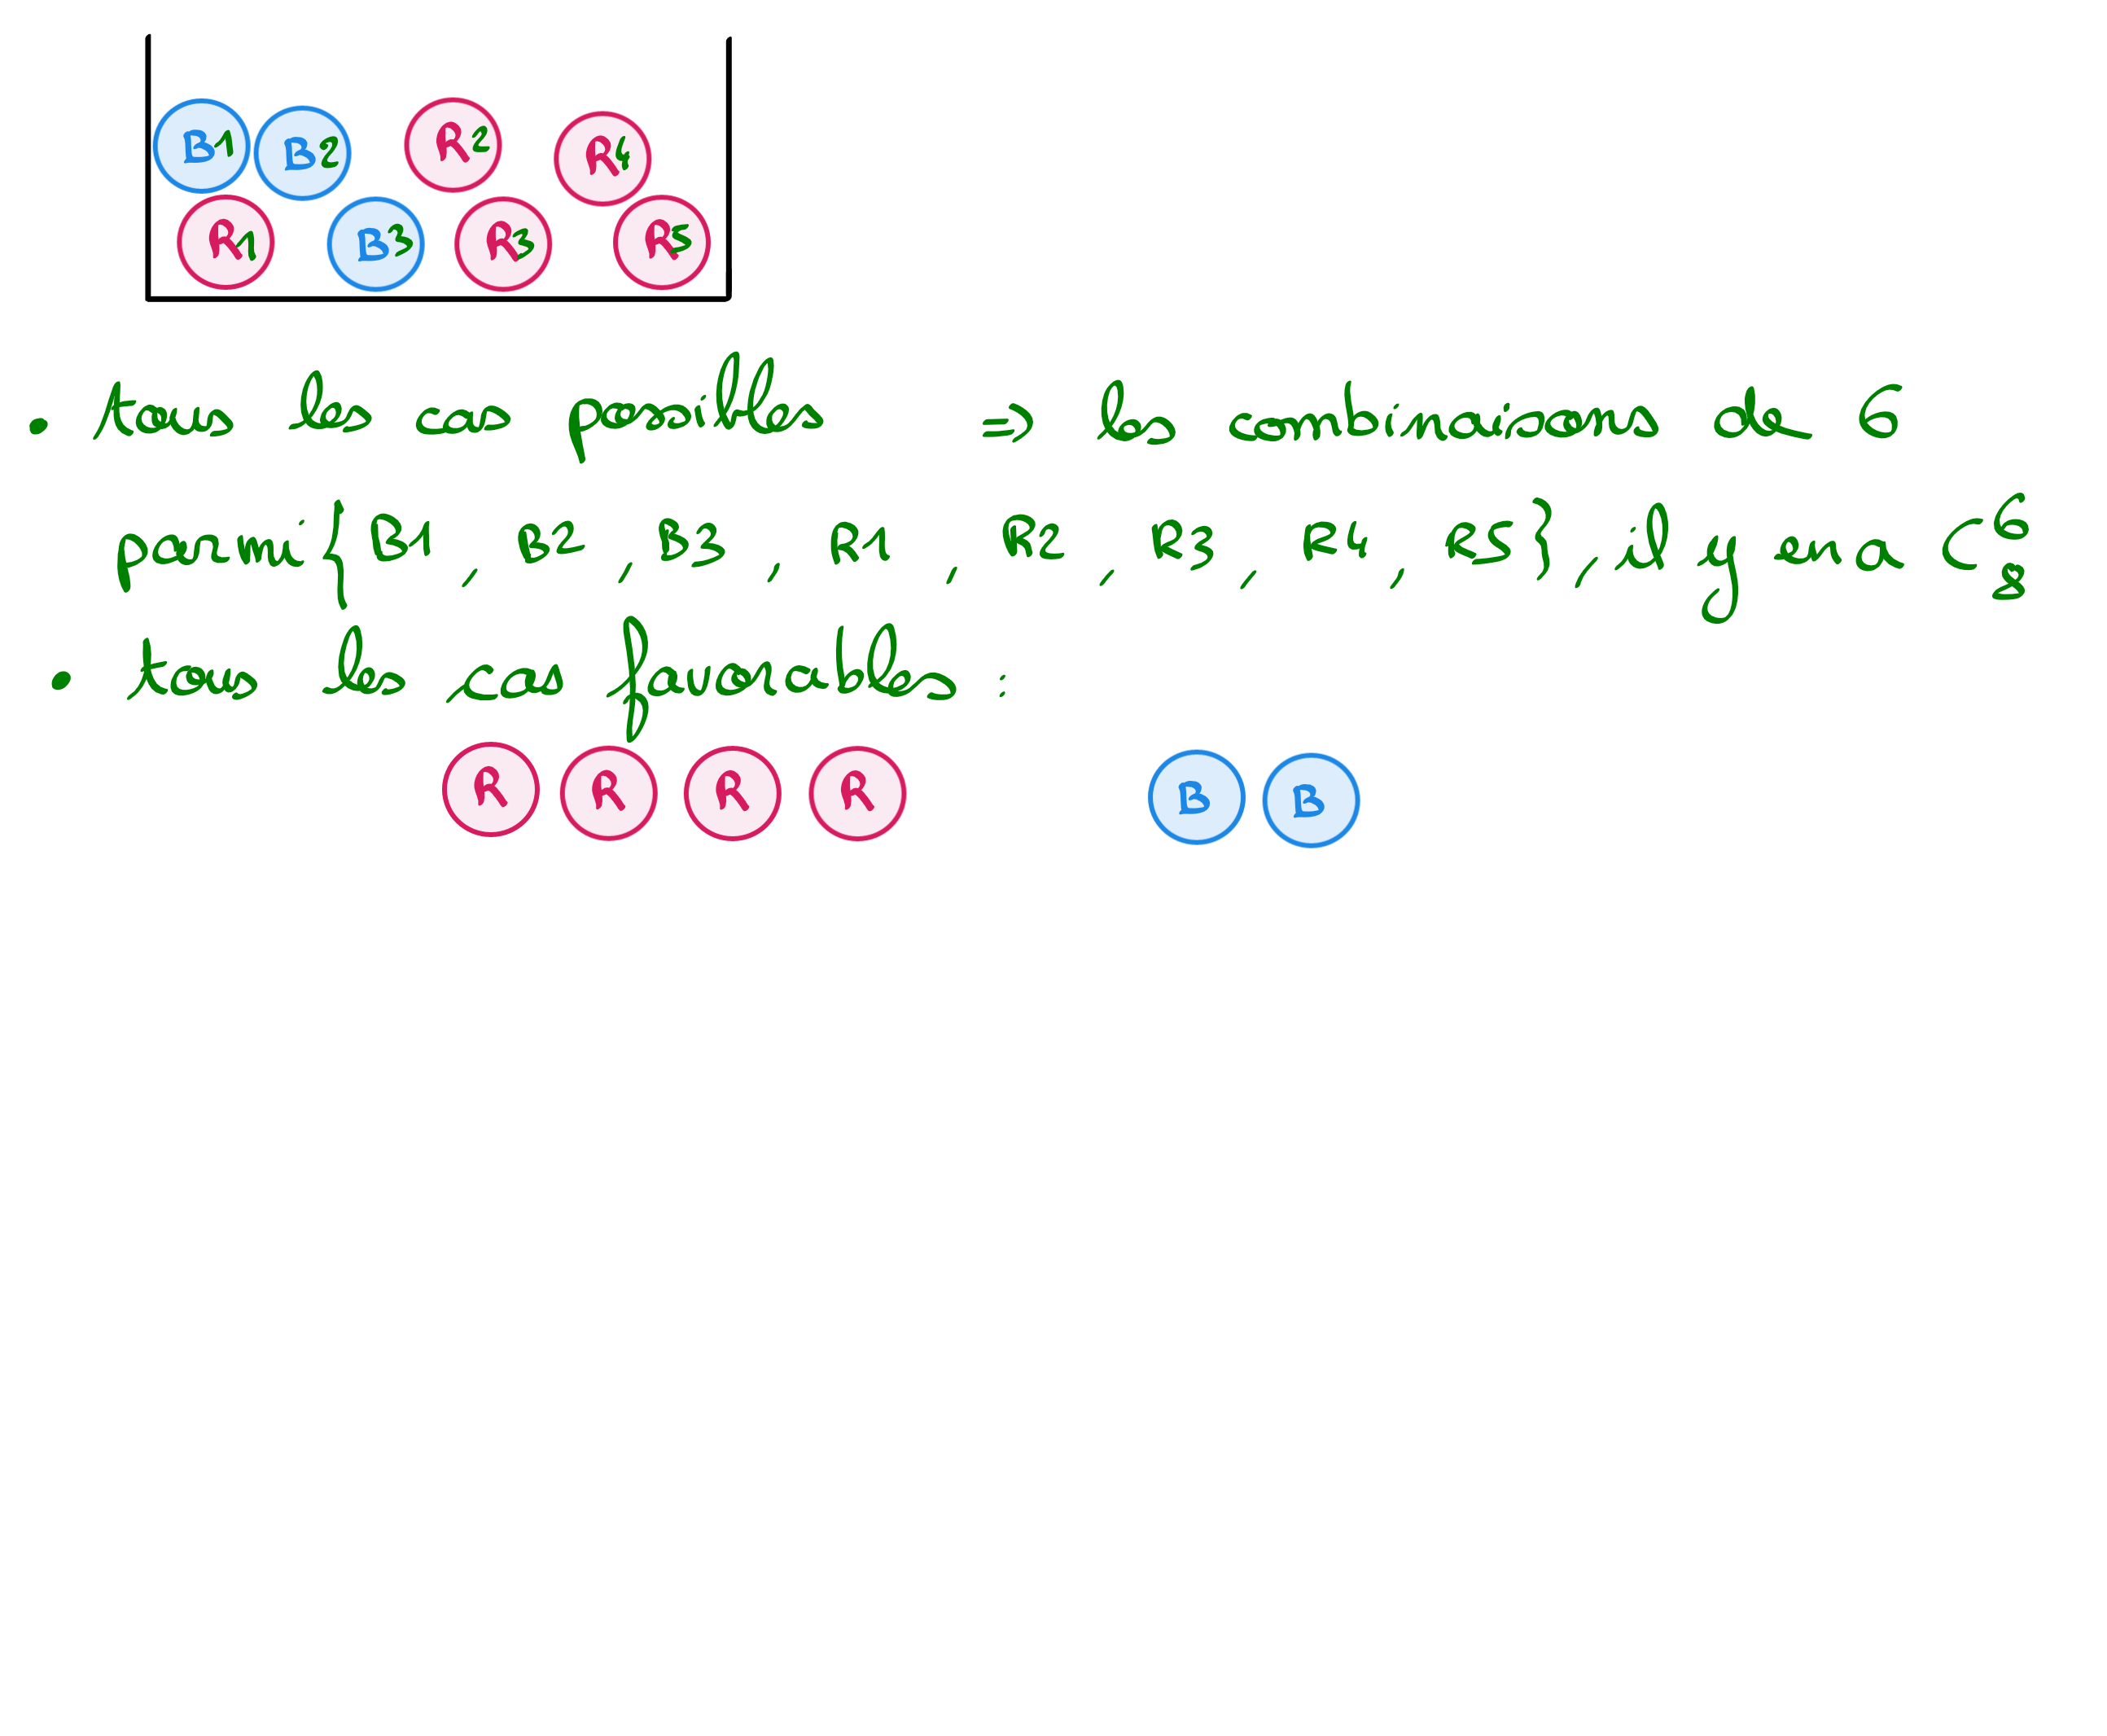 B1 B2 R2 R4
R1 B3 R3 R5
• tous les cas possibles => les combinaisons de 6
parmi {B1, B2, B3, R1, R2, R3, R4, R5}, il y en a C⁶₈
• tous les cas favorables :
R R R R B B